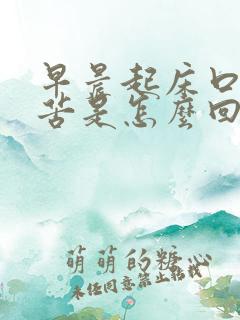 早晨起床口
苦是怎麼回
萌萌的糖心
未经同意禁止转载